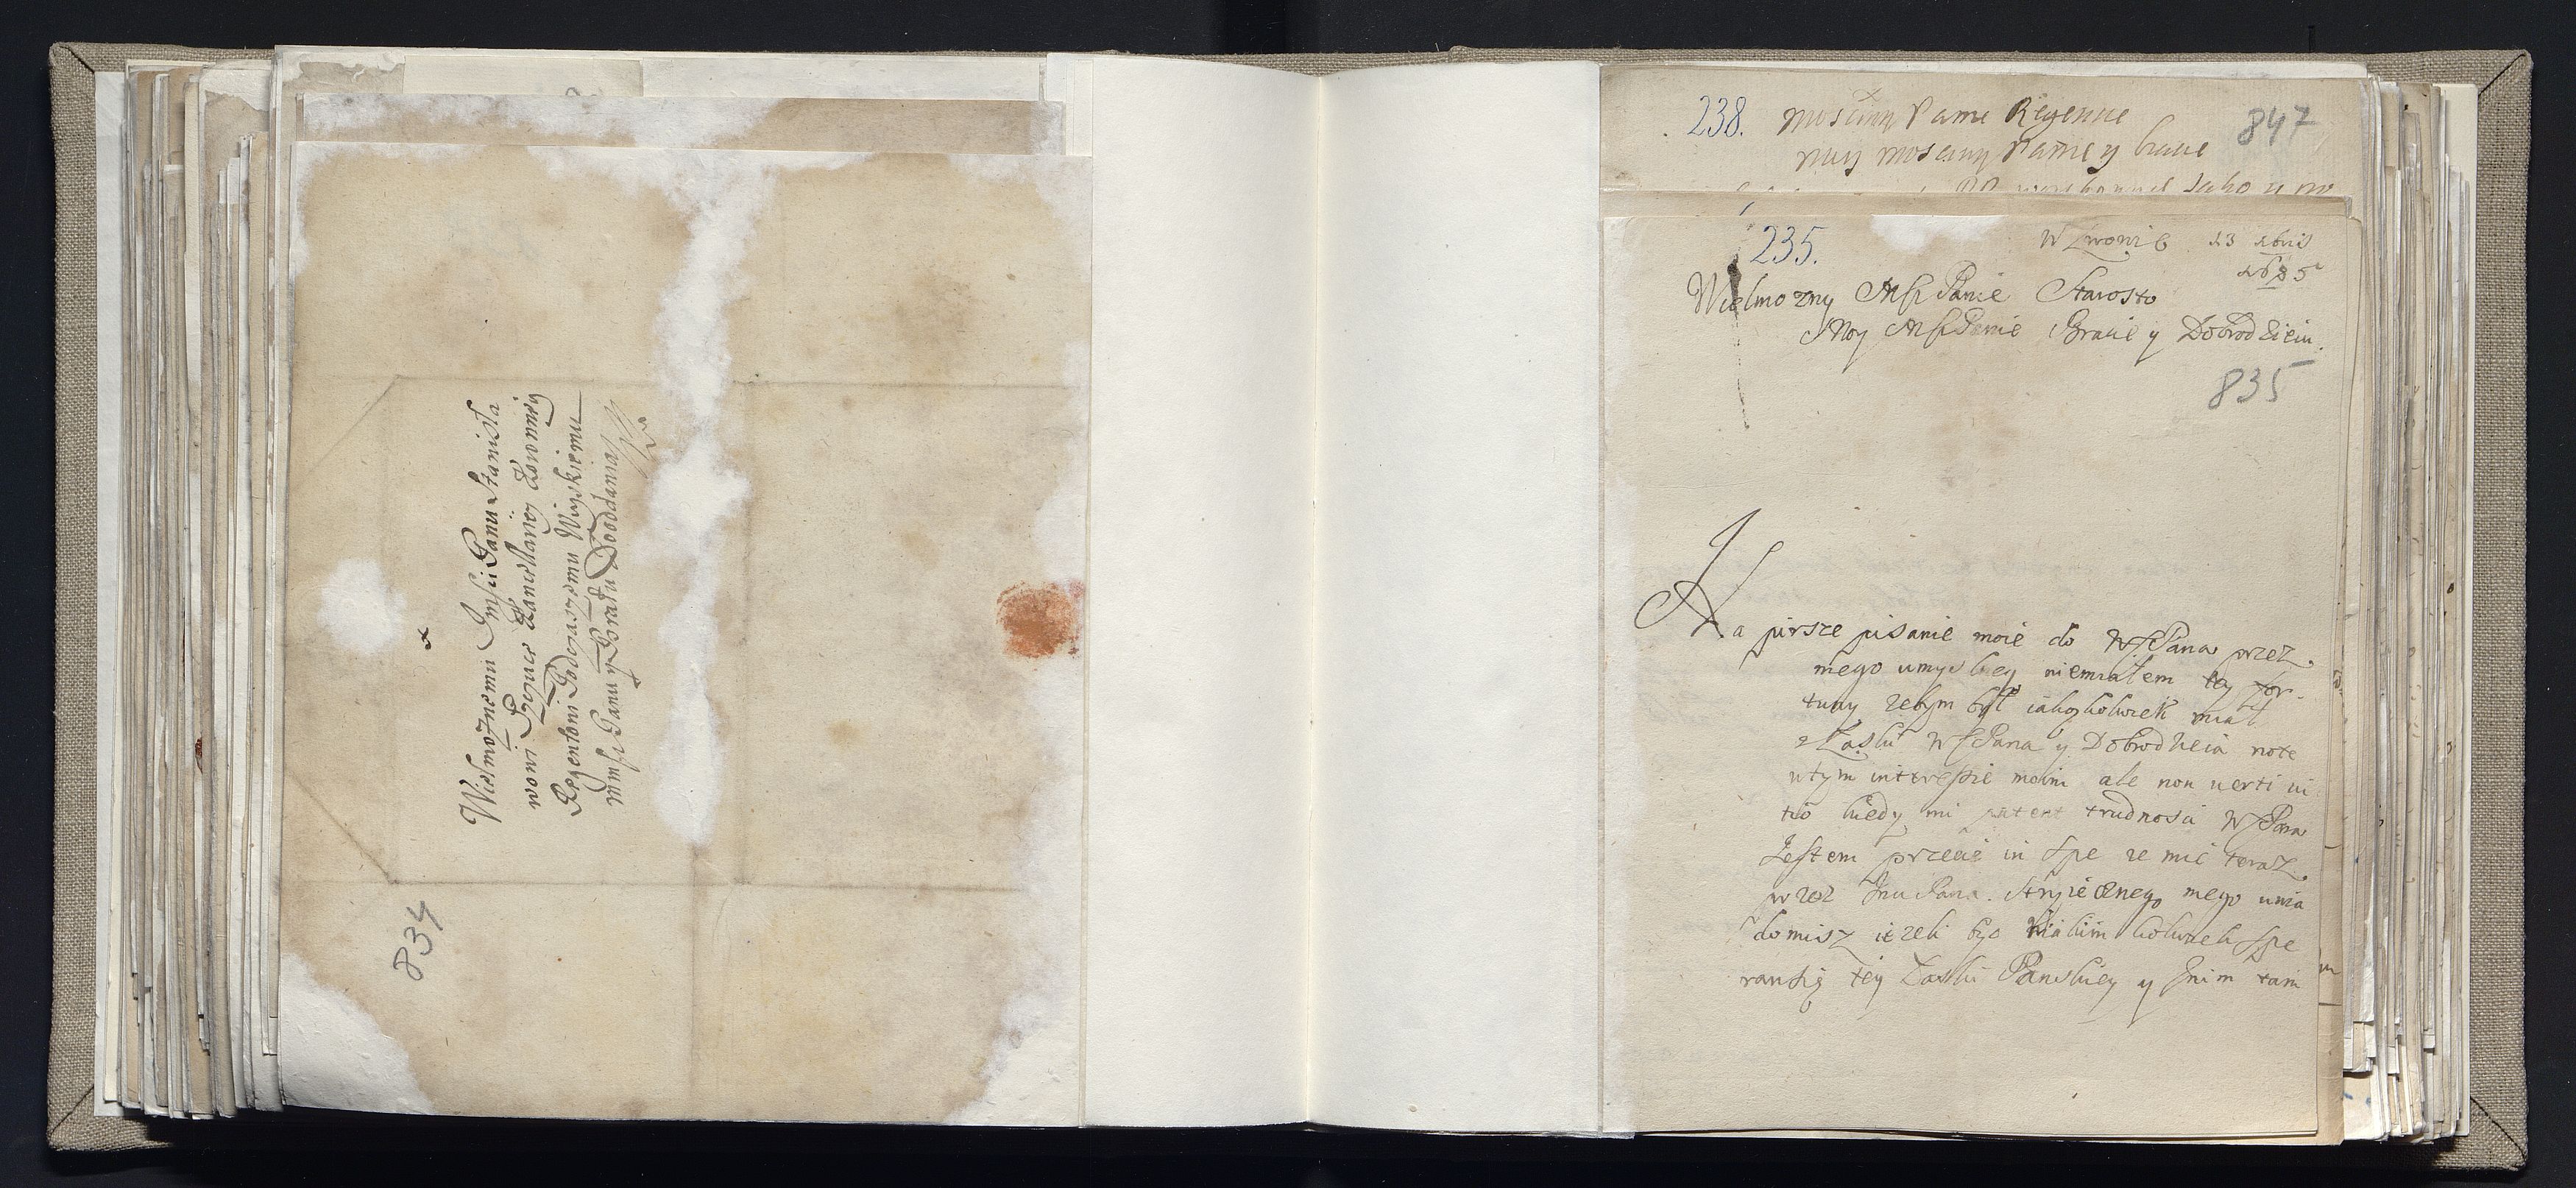 Wielmożnemu Jmsci Panu Stanisła
wowi Szczuce
Regentowi Podczaszemu Wizskiemu
mmsci Panu y Bratu Dooddania
834
238. Mosciwy Panie Regencie
847
muy mosciwy Panie y bracie
235.
W Lwowie 23 xbris
1685
Wielmozny Msci Panie Starosto
Moy Msci Panie Bracie y Dobrodzieiu.
835
Na pirsze pisanie moie do WMPana przez
mego umyslnego niemialem tey for-
tuny zebym był iakożkolwiek miał
z Łaski WMPana y Dobrodzieia notę
wtym interessie moim ale non verti vi
tio kiedy mi patent trudnosci WMPana
Jestem przecie in spe ze mie teraz
przez Jmci Pana Stryiecznego mego uwia
domisz iezeli byc w iakim kolwiek spe
ransię tey Łaski Panskiey y Jnim tam